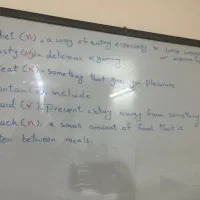 diet (n), a way of eating especially to lose weight
or improve
tasty (adj) = delicious = yummy
treat (n) = something that gives you pleasure
contain (v), include
avoid (v), prevent, stay away from something
snack (n), a small amount of food that is
eaten between meals.